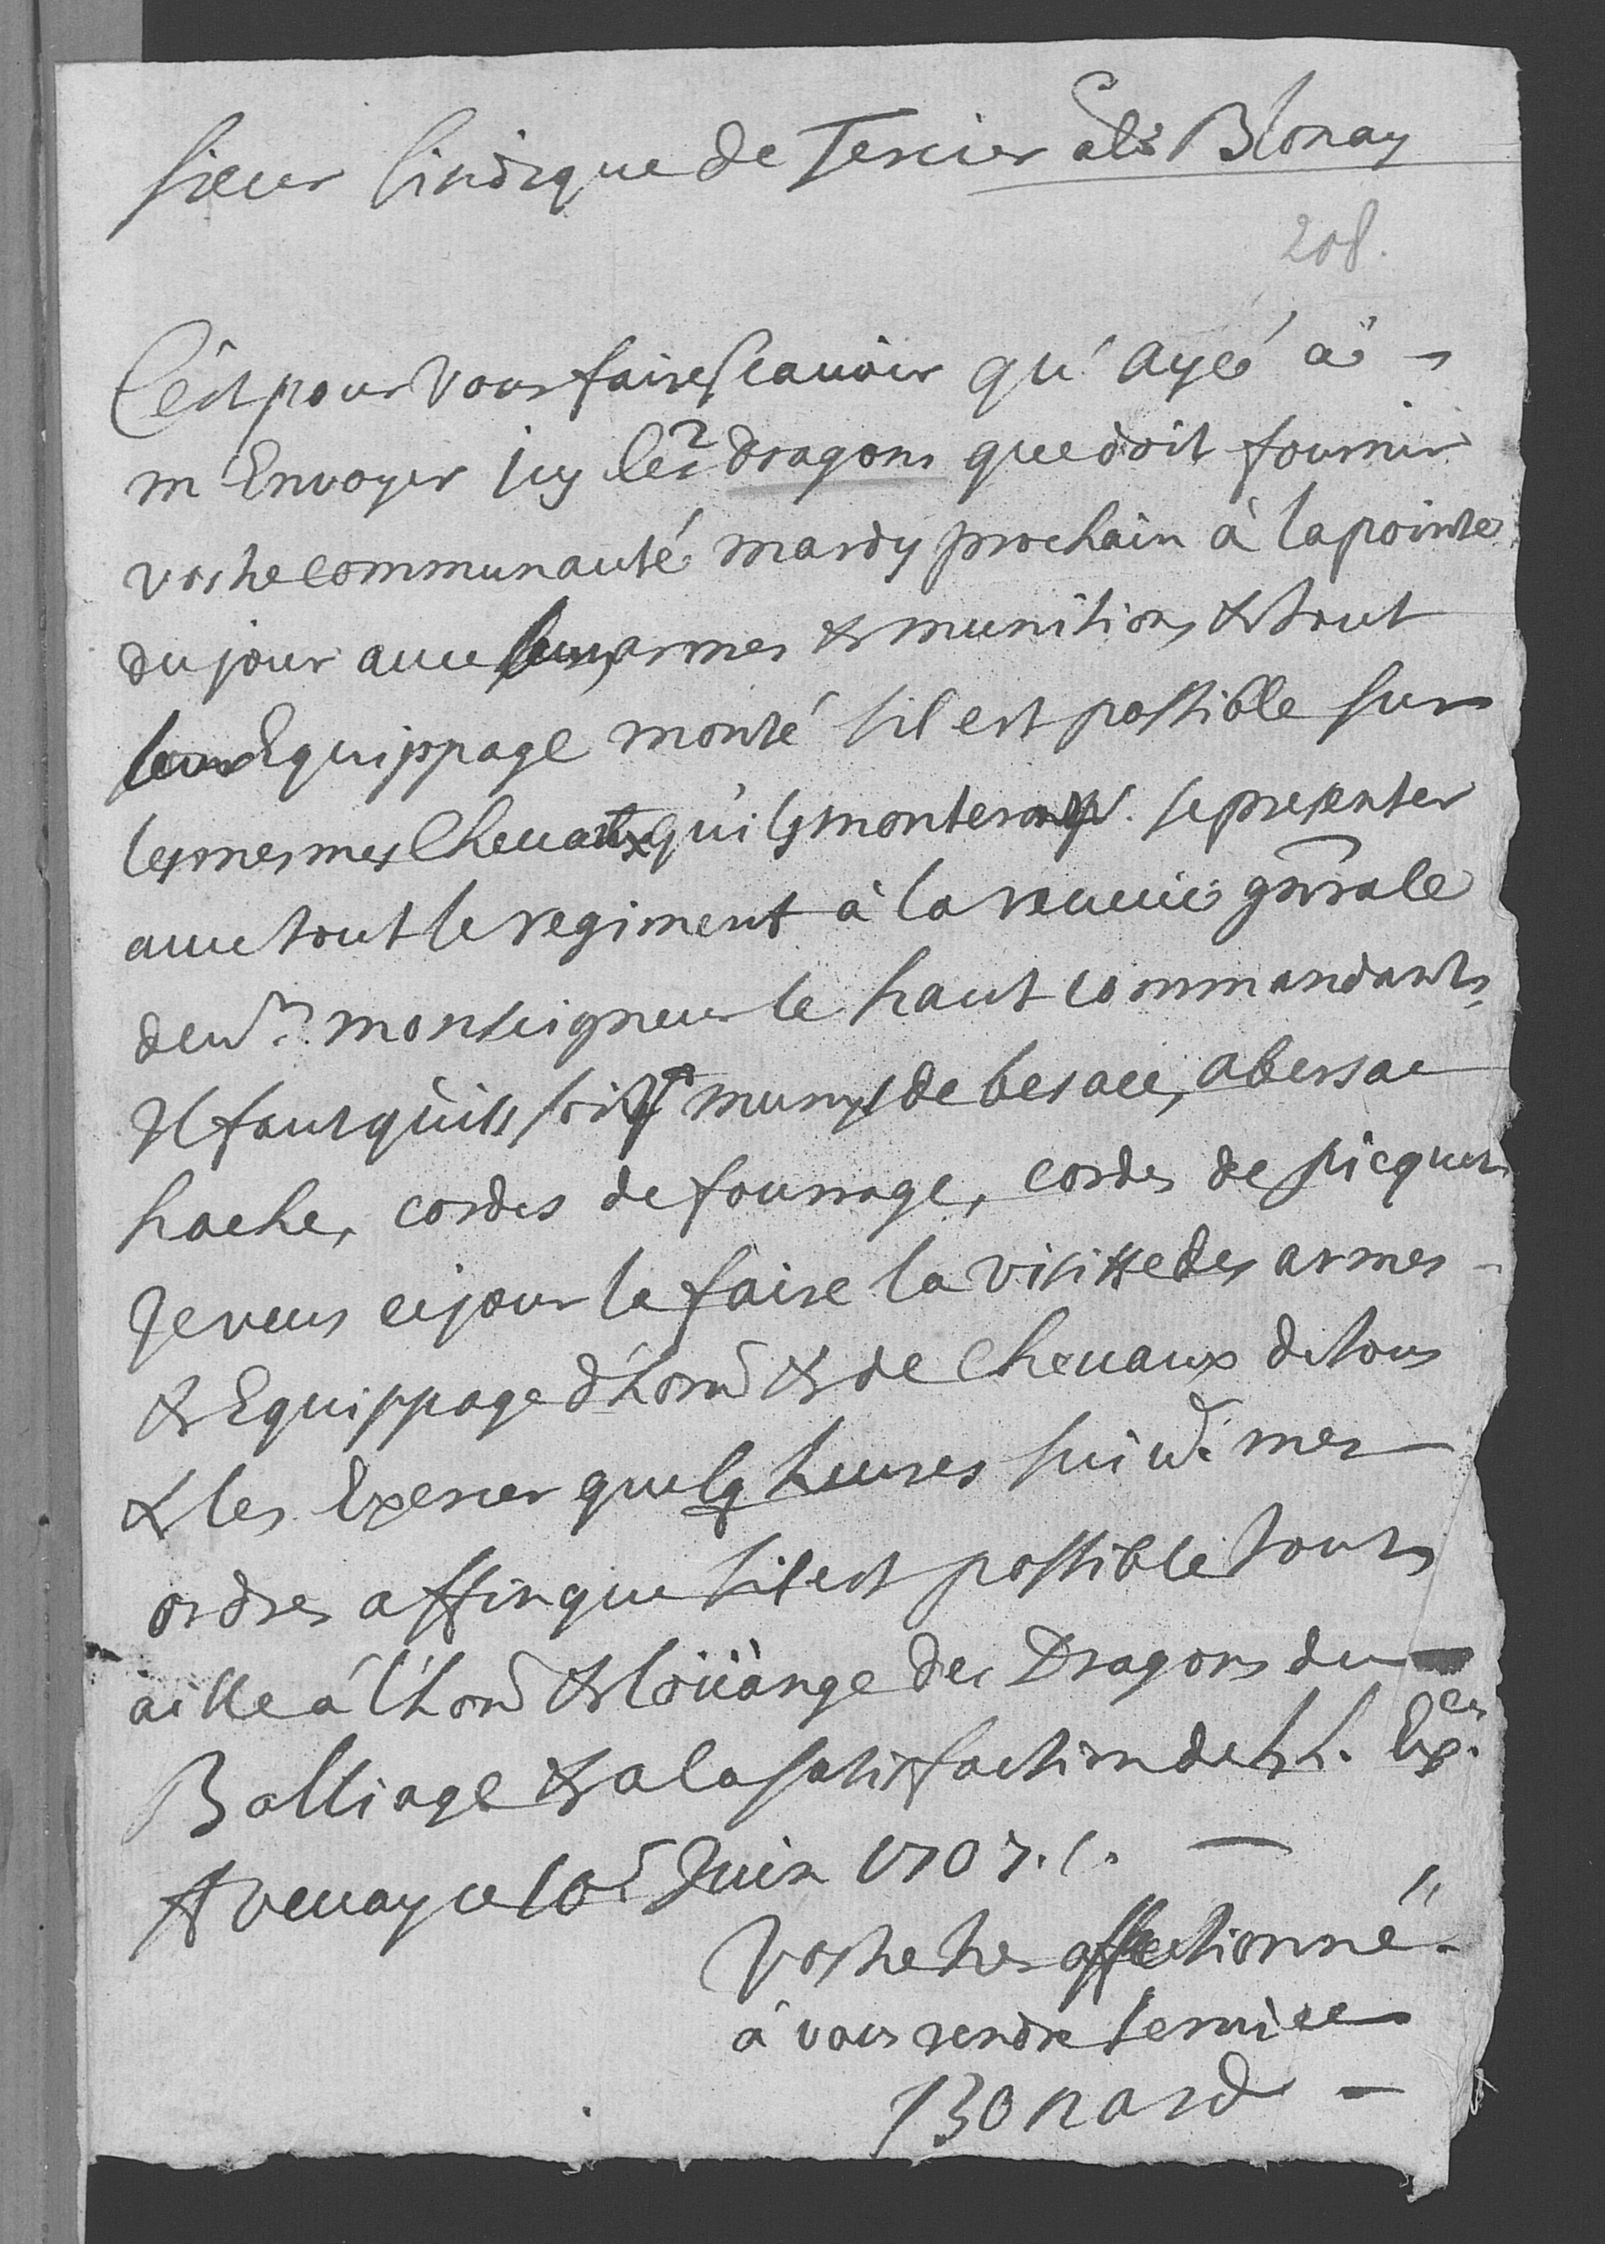 Sieur Sindique de Tercier alié Blonay
208.
C'est pour vous faire scauoir qu'ayé à
m'Envoyer icy les 2 dragons que doit fournir
vostre communauté mardy prochain à la pointe
du jour auec leurs armes & munitions & tout
leur Equippage monté s'il est possible sur
les mesmes Cheuaux qu'ils monteront pr. se presenter
auec tout le regiment à la reueuë gñrale
deuᵗ monseigneur le haut commandant,
Il faut qu'ils soiẽt munys de besace, abersac
hache, cordes de fourrage, cordes de picquet
Je veus ce jour la faire la visitte des armes
& Equippage d'hom̃ & de Cheuaux de tous
& les Exercer quelq heures suiuᵗ. mes
ordres affin que s'il est possible tout
aille á l'hon̄ & loüange des Dragons du
Balliage & a la satisfaction de LL. Exces.
A veuay ce 10e Juin 1707.
Vostre tres affectionné
à vous rendre seruice
Bonard